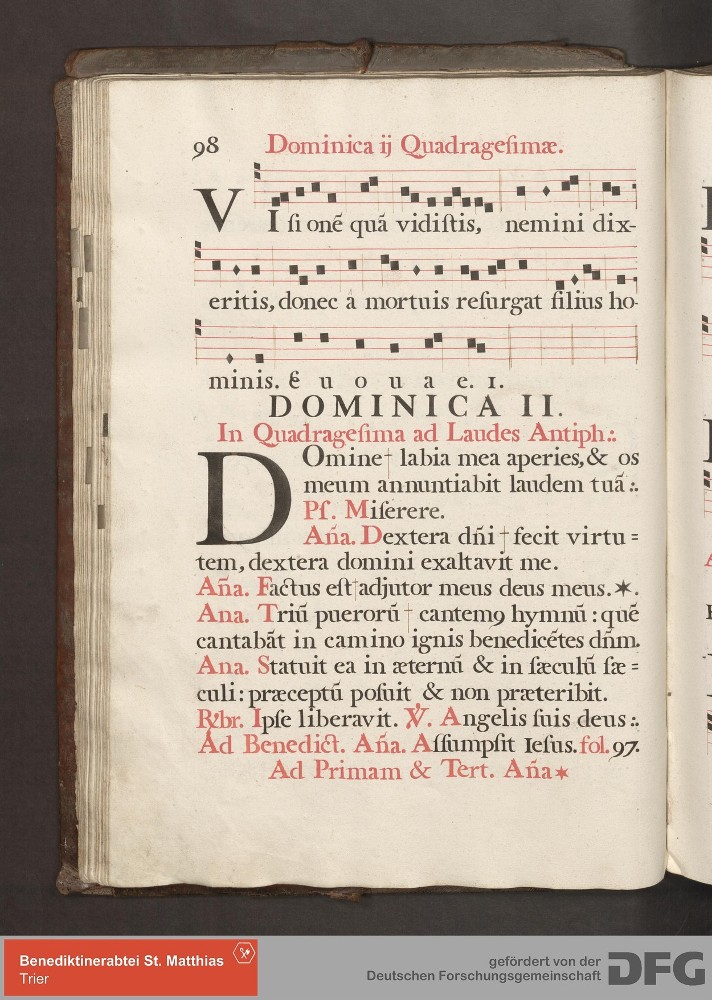 98 Dominica ij Quadrageſimæ.
VIſi onē quā vidiſtis, nemini dix-
eritis, donec a mortuis reſurgat filius ho-
minis. E u o u a e. 1.
DOMINICA II.
In Quadrageſima ad Laudes Antiph:.
DOmine† labia mea aperies, & os
meum annuntiabit laudem tuā:.
Pſ. Miſerere.
Aña. Dextera dñi † fecit virtu=
tem, dextera domini exaltavit me.
Añа. Factus eſt†adjutor meus deus meus.✶.
Ana. Triū puerorū † cantemꝯ hymnū : quē
cantabāt in camino ignis benedicētes dñm.
Ana. Statuit ea in æternū & in ſæculū ſæ=
culi : præceptū poſuit & non præteribit.
R̷br. Ipſe liberavit. ℣. Angelis ſuis deus:.
Ad Benedict. Aña. Aſſumpſit Ieſus. fol. 97.
Ad Primam & Tert. Aña✶
Benediktinerabtei St. Matthias
Trier
gefördert von der
Deutschen Forschungsgemeinschaft
DFG